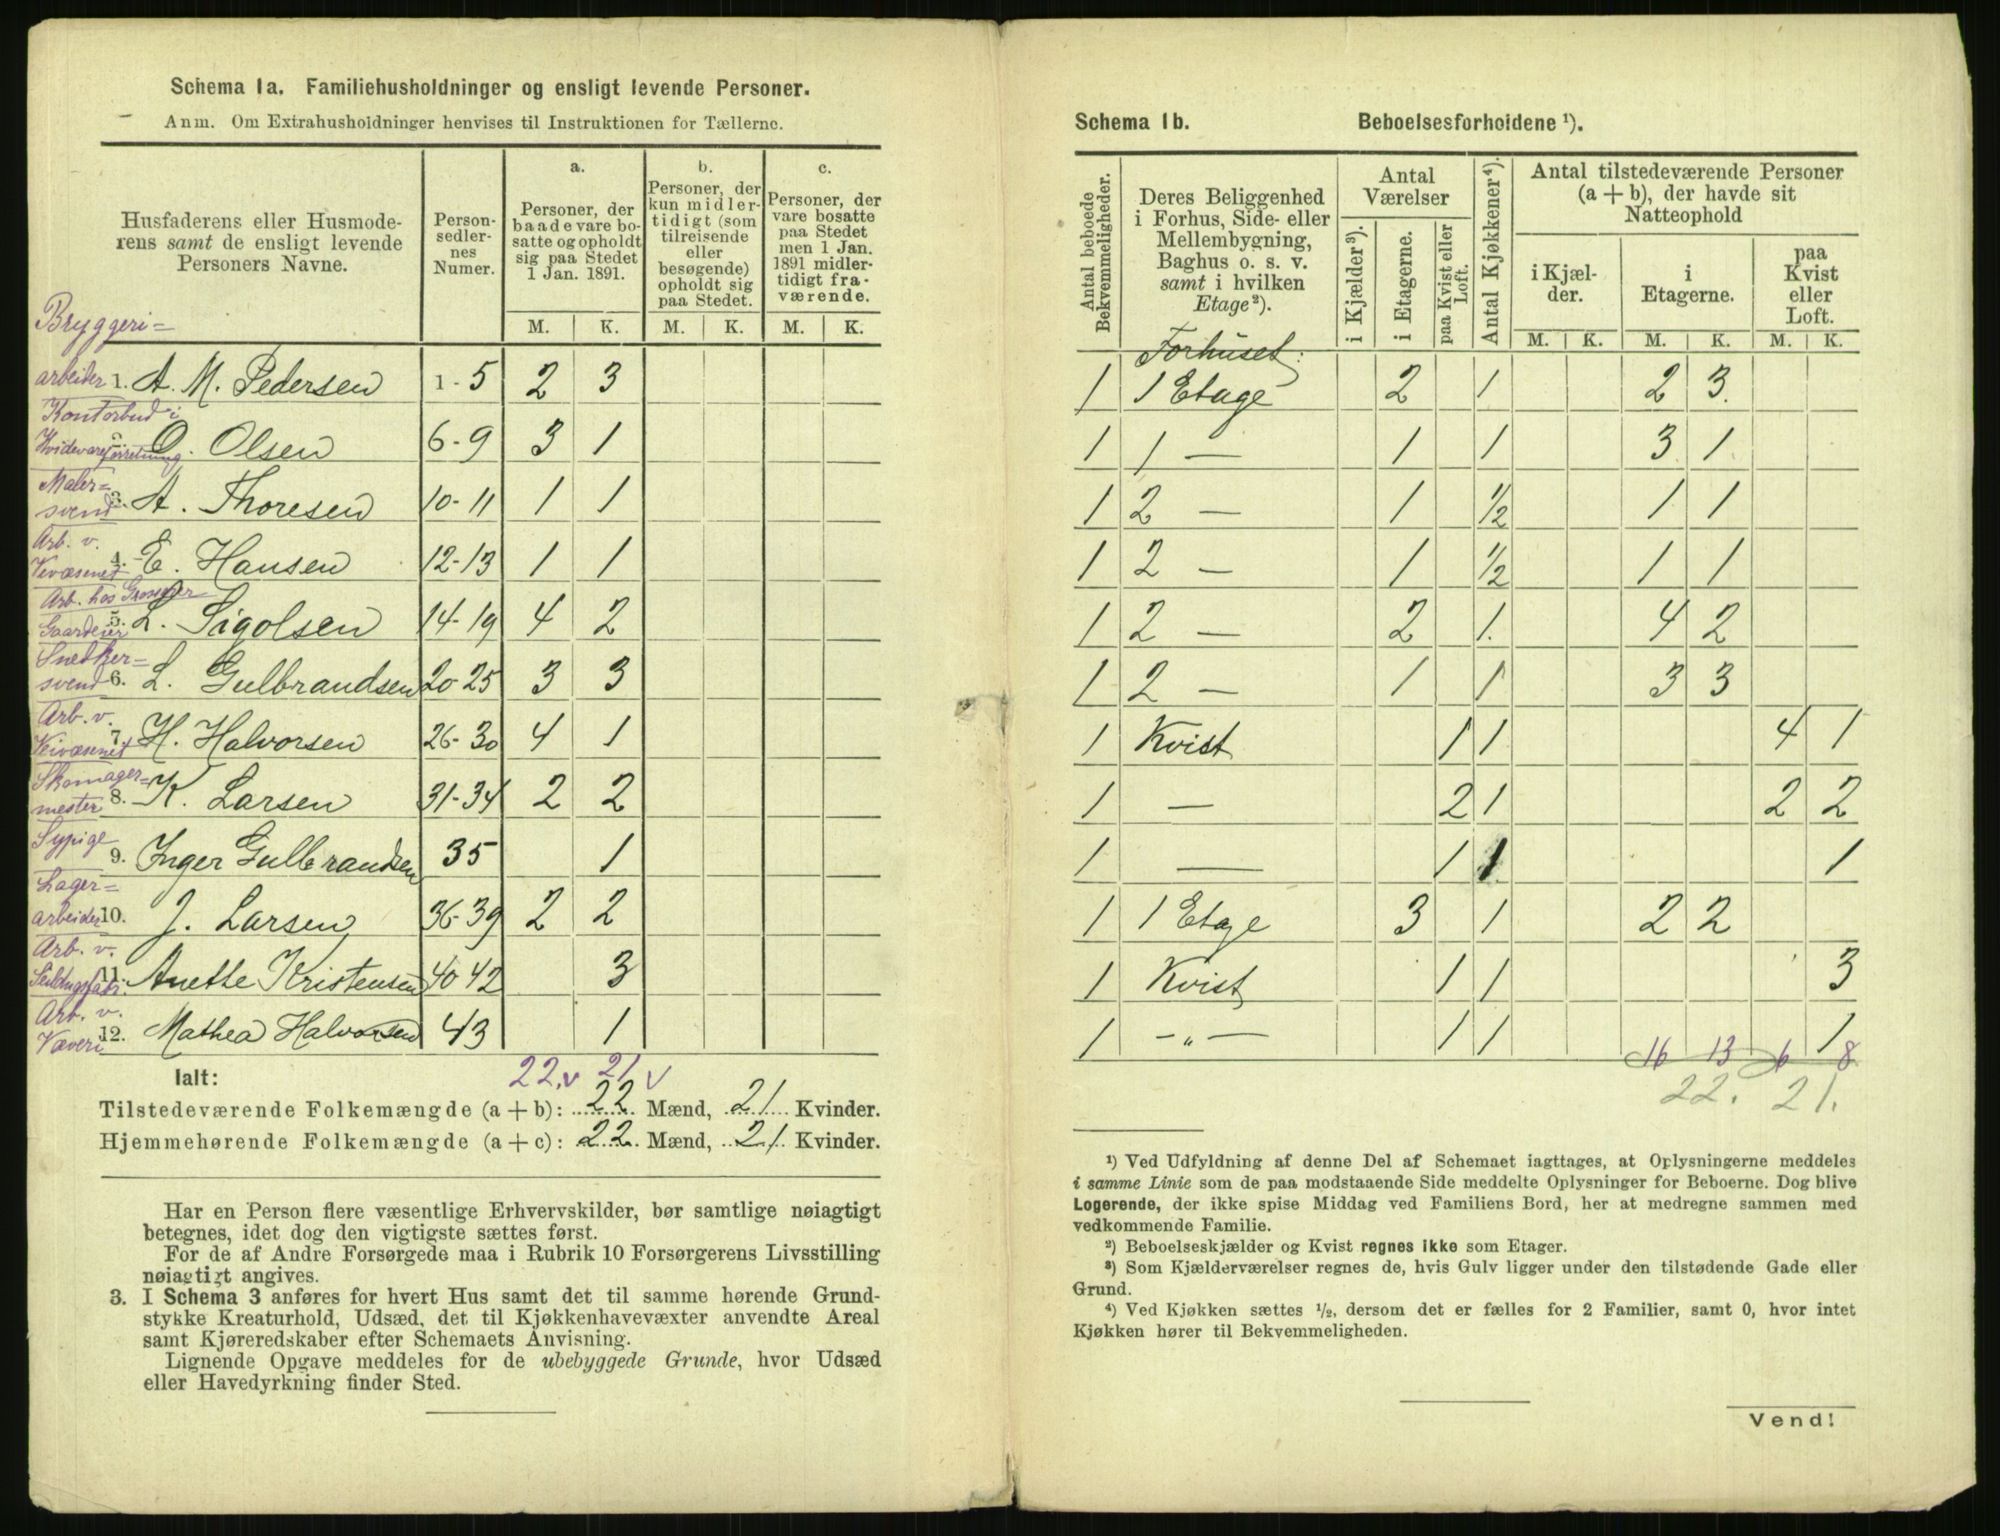 Schema 1a. Familiehusholdninger og ensligt levende Personer.
Anm. Om Extrahusholdninger henvises til Instruktionen for Tællerne.
Husfaderens eller Husmoderens samt de ensligt levende Personers Navne.
Personsedlernes Numer.
a. Personer, der baade vare bosatte og opholdt sig paa Stedet 1 Jan. 1891.
b. Personer, der kun midlertidigt (som tilreisende eller besøgende) opholdt sig paa Stedet.
c. Personer, der vare bosatte paa Stedet men 1 Jan. 1891 midlertidigt fraværende.
M. K. M. K. M. K.
Bryggeri=
arbeider 1. A. M. Pedersen 1-5 2 3
Kontorbud i
Hvidevareforretning 2. O. Olsen 6-9 3 1
Maler=
svend 3. A. Thoresen 10-11 1 1
Arb. v.
Veivæsenet 4. E. Hansen 12-13 1 1
Arb. hos
Gaardeier 5. L. Sigolsen 14-19 4 2
Snedker=
svend 6. L. Gulbrandsen 20-25 3 3
Arb. v.
Veivæsenet 7. H. Halvorsen 26-30 4 1
Skomager=
mester 8. K. Larsen 31-34 2 2
Sypige
9. Inger Gulbrandsen 35 1
Lager=
arbeider 10. J. Larsen 36-39 2 2
Arb. v.
11. Anette Kristensen 40 42 3
Arb. v.
Væveri 12. Mathea Halvorsen 43 1
22.v 21v
Ialt:
Tilstedeværende Folkemængde (a + b): 22 Mænd, 21 Kvinder.
Hjemmehørende Folkemængde (a + c): 22 Mænd, 21 Kvinder.
Har en Person flere væsentlige Erhvervskilder, bør samtlige nøiagtigt
betegnes, idet dog den vigtigste sættes først.
For de af Andre Forsørgede maa i Rubrik 10 Forsørgerens Livsstilling
nøiagtigt angives.
3. I Schema 3 anføres for hvert Hus samt det til samme hørende Grund-
stykke Kreaturhold, Udsæd, det til Kjøkkenhavevæxter anvendte Areal
samt Kjøreredskaber efter Schemaets Anvisning.
Lignende Opgave meddeles for de ubebyggede Grunde, hvor Udsæd
eller Havedyrkning finder Sted.
Schema 1b. Beboelsesforholdene ¹).
Antal beboede Bekvemmeligheder.
Deres Beliggenhed i Forhus, Side- eller Mellembygning, Baghus o. s. v. samt i hvilken Etage²).
Antal Værelser
i Kjælder³).
i Etagerne.
paa Kvist eller Loft.
Antal Kjøkkener⁴).
Antal tilstedeværende Personer (a + b), der havde sit Natteophold
i Kjælder.
i Etagerne.
paa Kvist eller Loft.
M. K. M. K. M. K.
Forhuset:
1 1 Etage 2 1 2 3.
1 1 — 1 1 3 1
1 2 — 1 1/2 1 1
1 2 — 1 1/2 1 1
1 2 — 2 1. 4 2
1 2 — 1 1 3 3
1 Kvist 1 1 4 1
1 — 2 1 2 2
1 — 1 1 1
1 1 Etage 3 1 2 2
1 Kvist 1 1 3
1 —„— 1 1 1
16 13 6 8
22. 21.
¹) Ved Udfyldning af denne Del af Schemaet iagttages, at Oplysningerne meddeles
i samme Linie som de paa modstaaende Side meddelte Oplysninger for Beboerne. Dog blive
Logerende, der ikke spise Middag ved Familiens Bord, her at medregne sammen med
vedkommende Familie.
²) Beboelseskjælder og Kvist regnes ikke som Etager.
³) Som Kjælderværelser regnes de, hvis Gulv ligger under den tilstødende Gade eller
Grund.
⁴) Ved Kjøkken sættes 1/2, dersom det er fælles for 2 Familier, samt 0, hvor intet
Kjøkken hører til Bekvemmeligheden.
Vend!